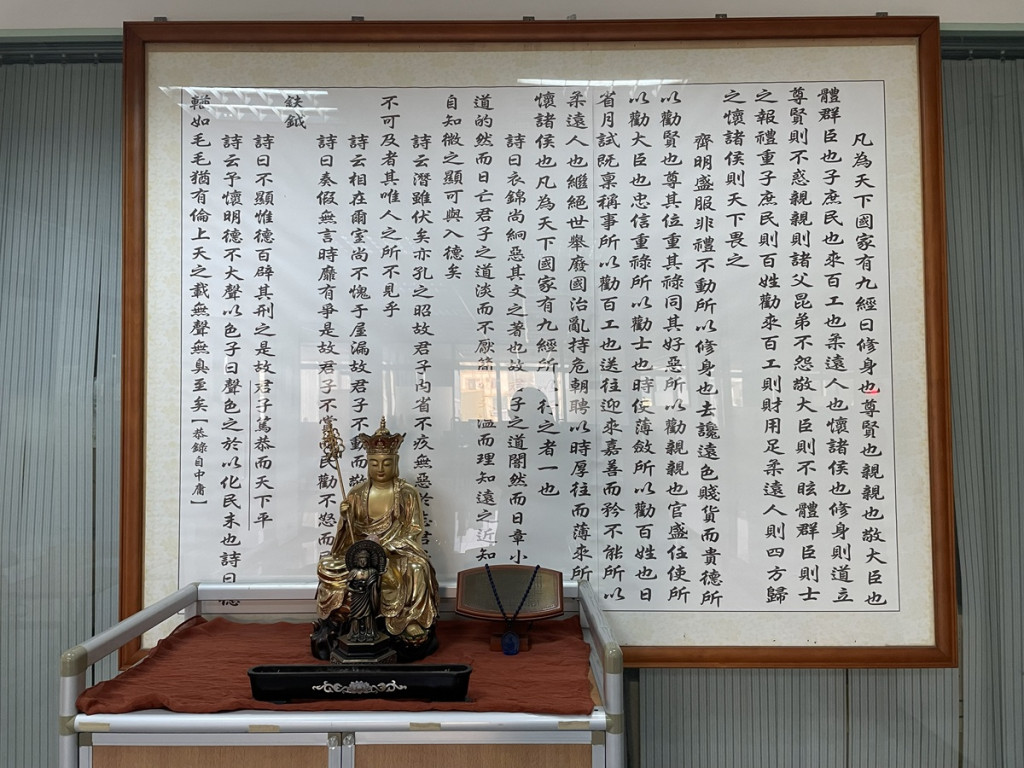 凡為天下國家有九經曰修身也尊賢也親親也敬大臣也
體群臣也子庶民也來百工也柔遠人也懷諸侯也修身則道立
尊賢則不惑親親則諸父昆弟不怨敬大臣則不眩體群臣則士
之報禮重子庶民則百姓勸來百工則財用足柔遠人則四方歸
之懷諸侯則天下畏之
齊明盛服非禮不動所以修身也去讒遠色賤貨而貴德所
以勸賢也尊其位重其祿同其好惡所以勸親親也官盛任使所
以勸大臣也忠信重祿所以勸士也時使薄斂所以勸百姓也日
省月試既稟稱事所以勸百工也送往迎來嘉善而矜不能所以
柔遠人也繼絕世舉廢國治亂持危朝聘以時厚往而薄來所
懷諸侯也凡為天下國家有九經所行之者一也
詩曰衣錦尚絅惡其文之著也故子之道闇然而日章小
道的然而日亡君子之道淡而不厭簡溫而理知遠之近知
自知微之顯可與入德矣
詩云潛雖伏矣亦孔之昭故君子內省不疚無惡於志君
不可及者其唯人之所不見乎
詩云相在爾室尚不愧于屋漏故君子不動而敬
詩曰奏假無言時靡有爭是故君子不賞而民勸不怒而民
鈇鉞
詩曰不顯惟德百辟其刑之是故君子篤恭而天下平
詩云予懷明德不大聲以色子曰聲色之於以化民末也詩曰德
輶如毛毛猶有倫上天之載無聲無臭至矣【恭錄自中庸】